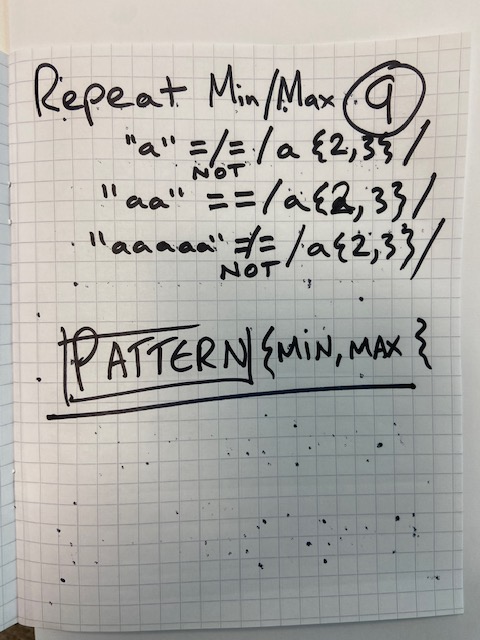 Repeat Min/Max 9
"a" =/= /a{2,3}/
NOT
"aa" == /a{2,3}/
"aaaaa" =/= /a{2,3}/
NOT
PATTERN {MIN, MAX}